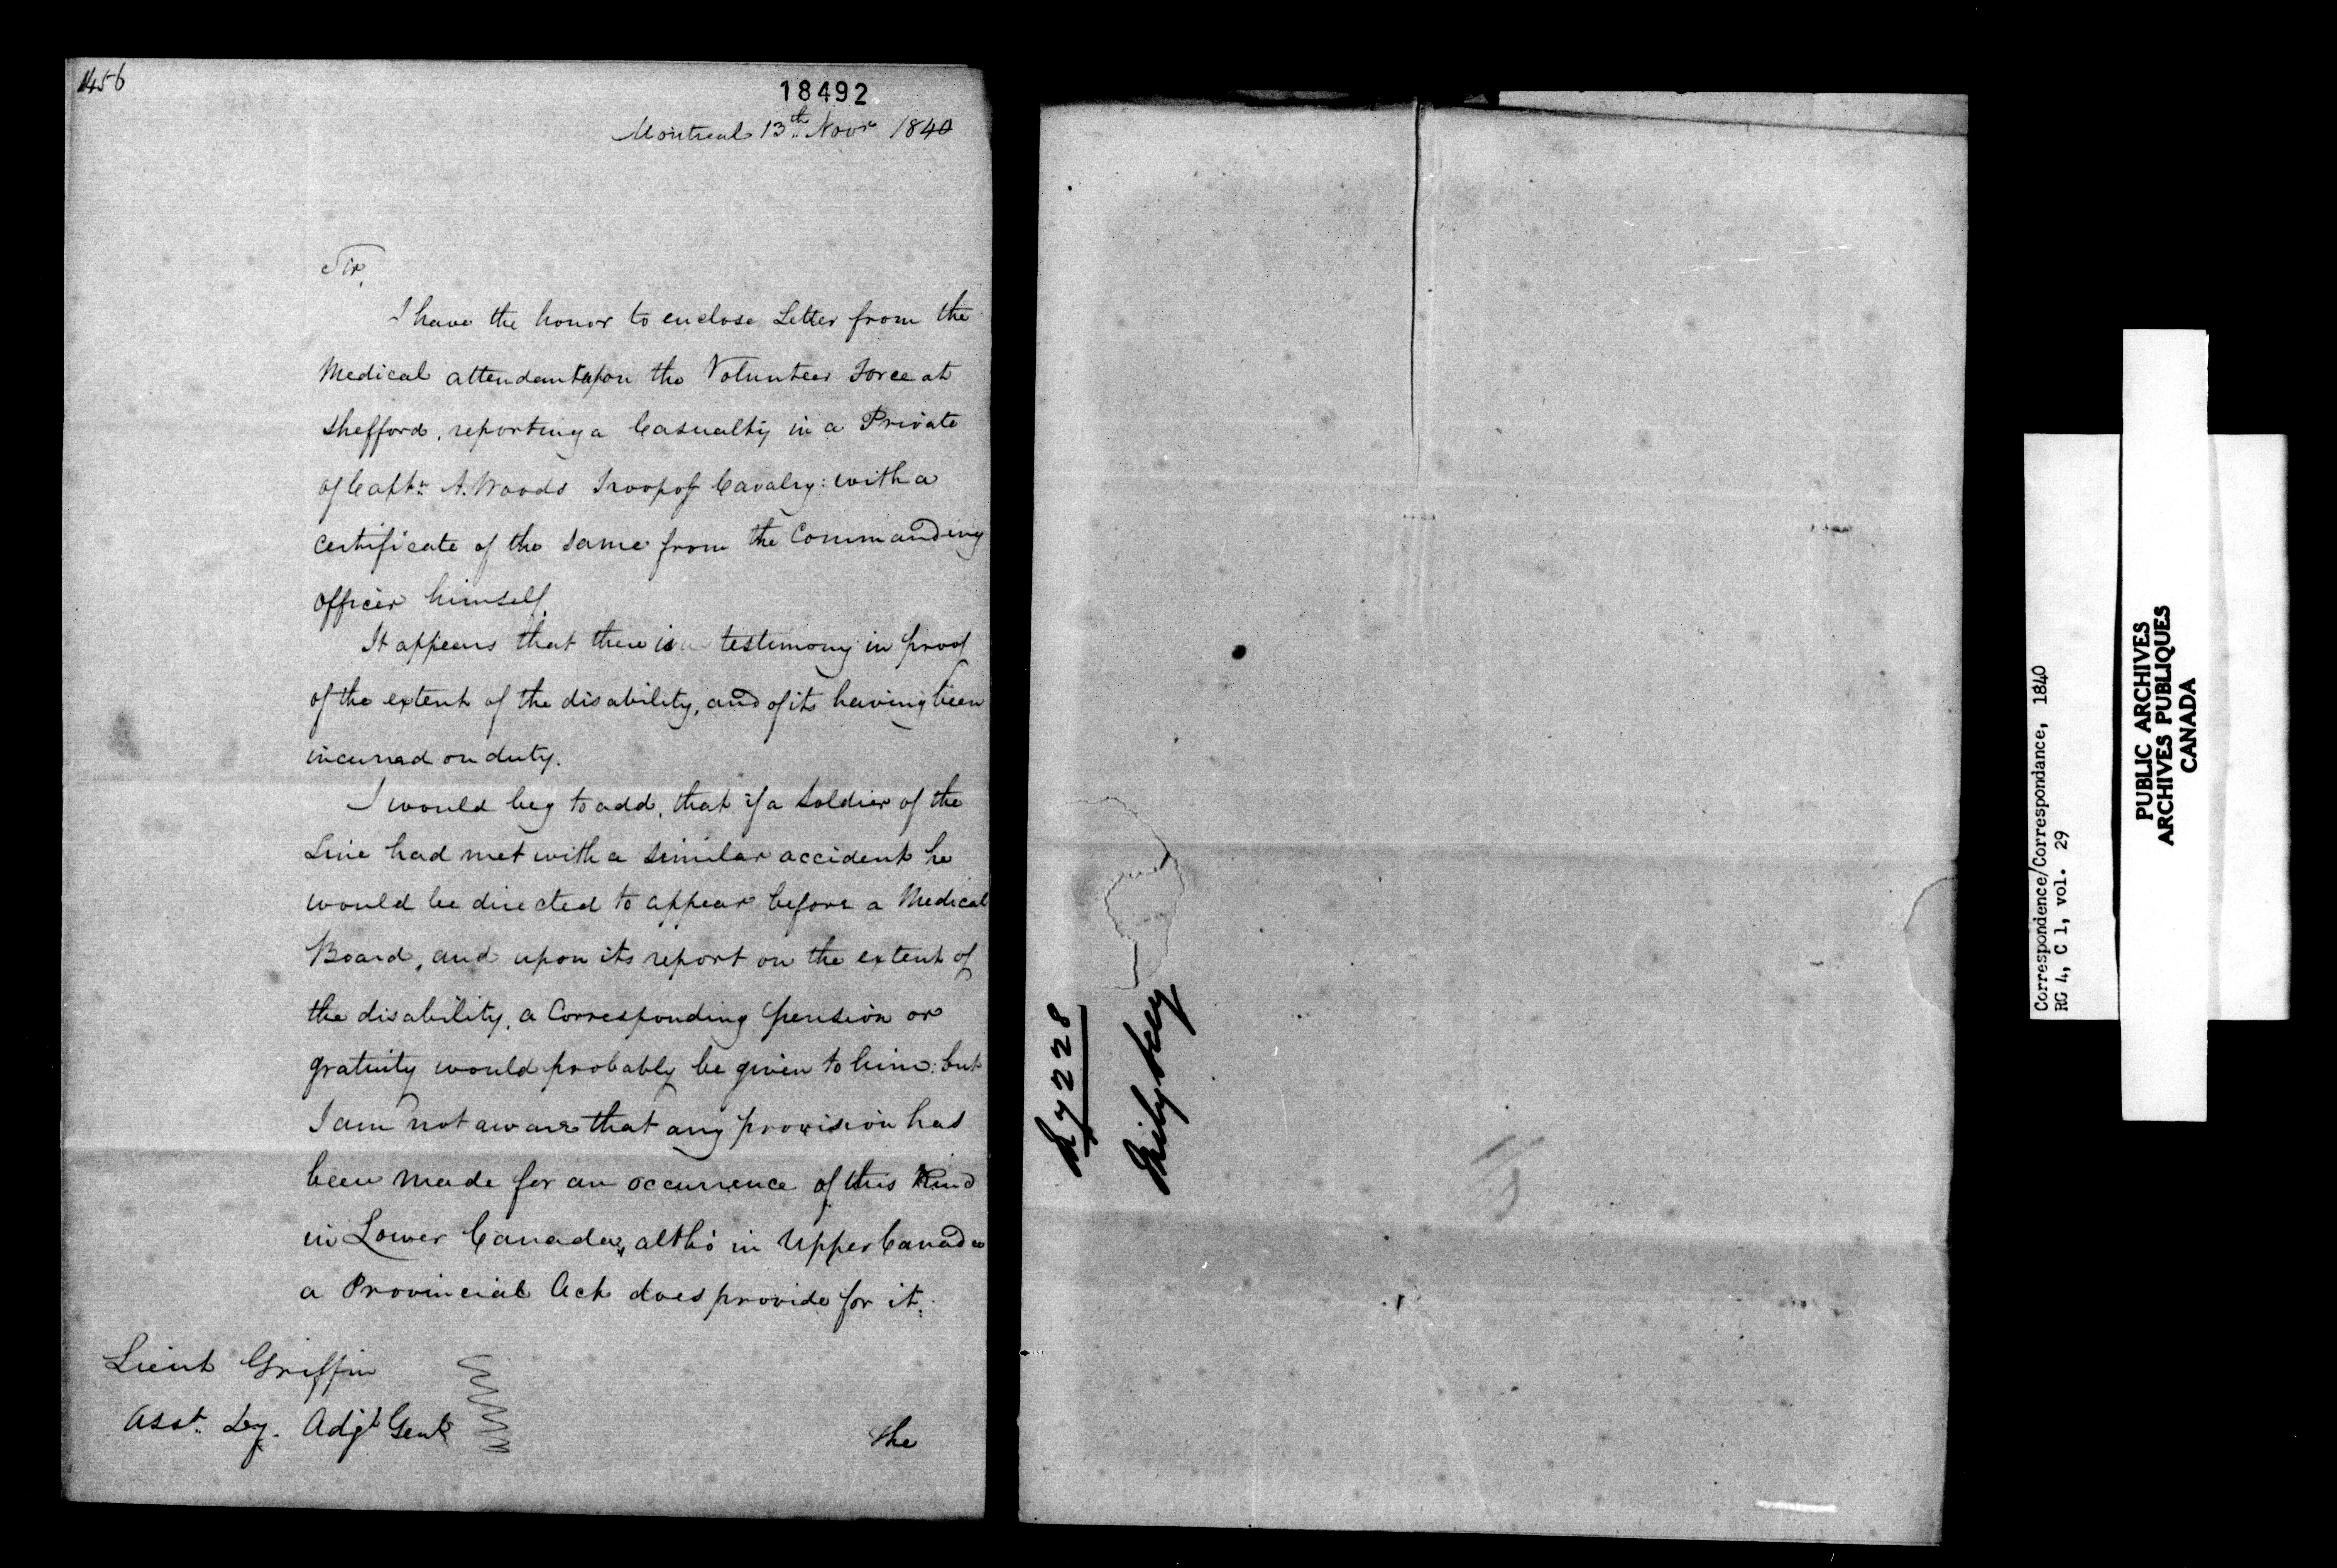 1456
18492
Montreal 13th Novr 1840
Sir,
I have the honor to enclose Letter from the
Medical attendant upon the Volunteer Force at
Shefford, reporting a Casualty in a Private
of Captn. A. Woods Troop of Cavalry: with a
certificate of the same from the Commanding
officer himself.
It appears that there is testimony in proof
of the extent of the disability, and of its having been
incurred on duty.
I would beg to add, that if a Soldier of the
Line had met with a similar accident he
would be directed to appear before a Medical
Board, and upon its report on the extent of
the disability, a Corresponding pension or
gratuity would probably be given to him: but
I am not aware that any provision has
been made for an occurrence of this Kind
in Lower Canada, altho' in Upper Canada
a Provincial Act does provide for it.
Lieut Griffin
Asst. Dy. Adjt Genl
the
Correspondence/Correspondance, 1840
RG 4, C 1, vol. 29
PUBLIC ARCHIVES
ARCHIVES PUBLIQUES
CANADA